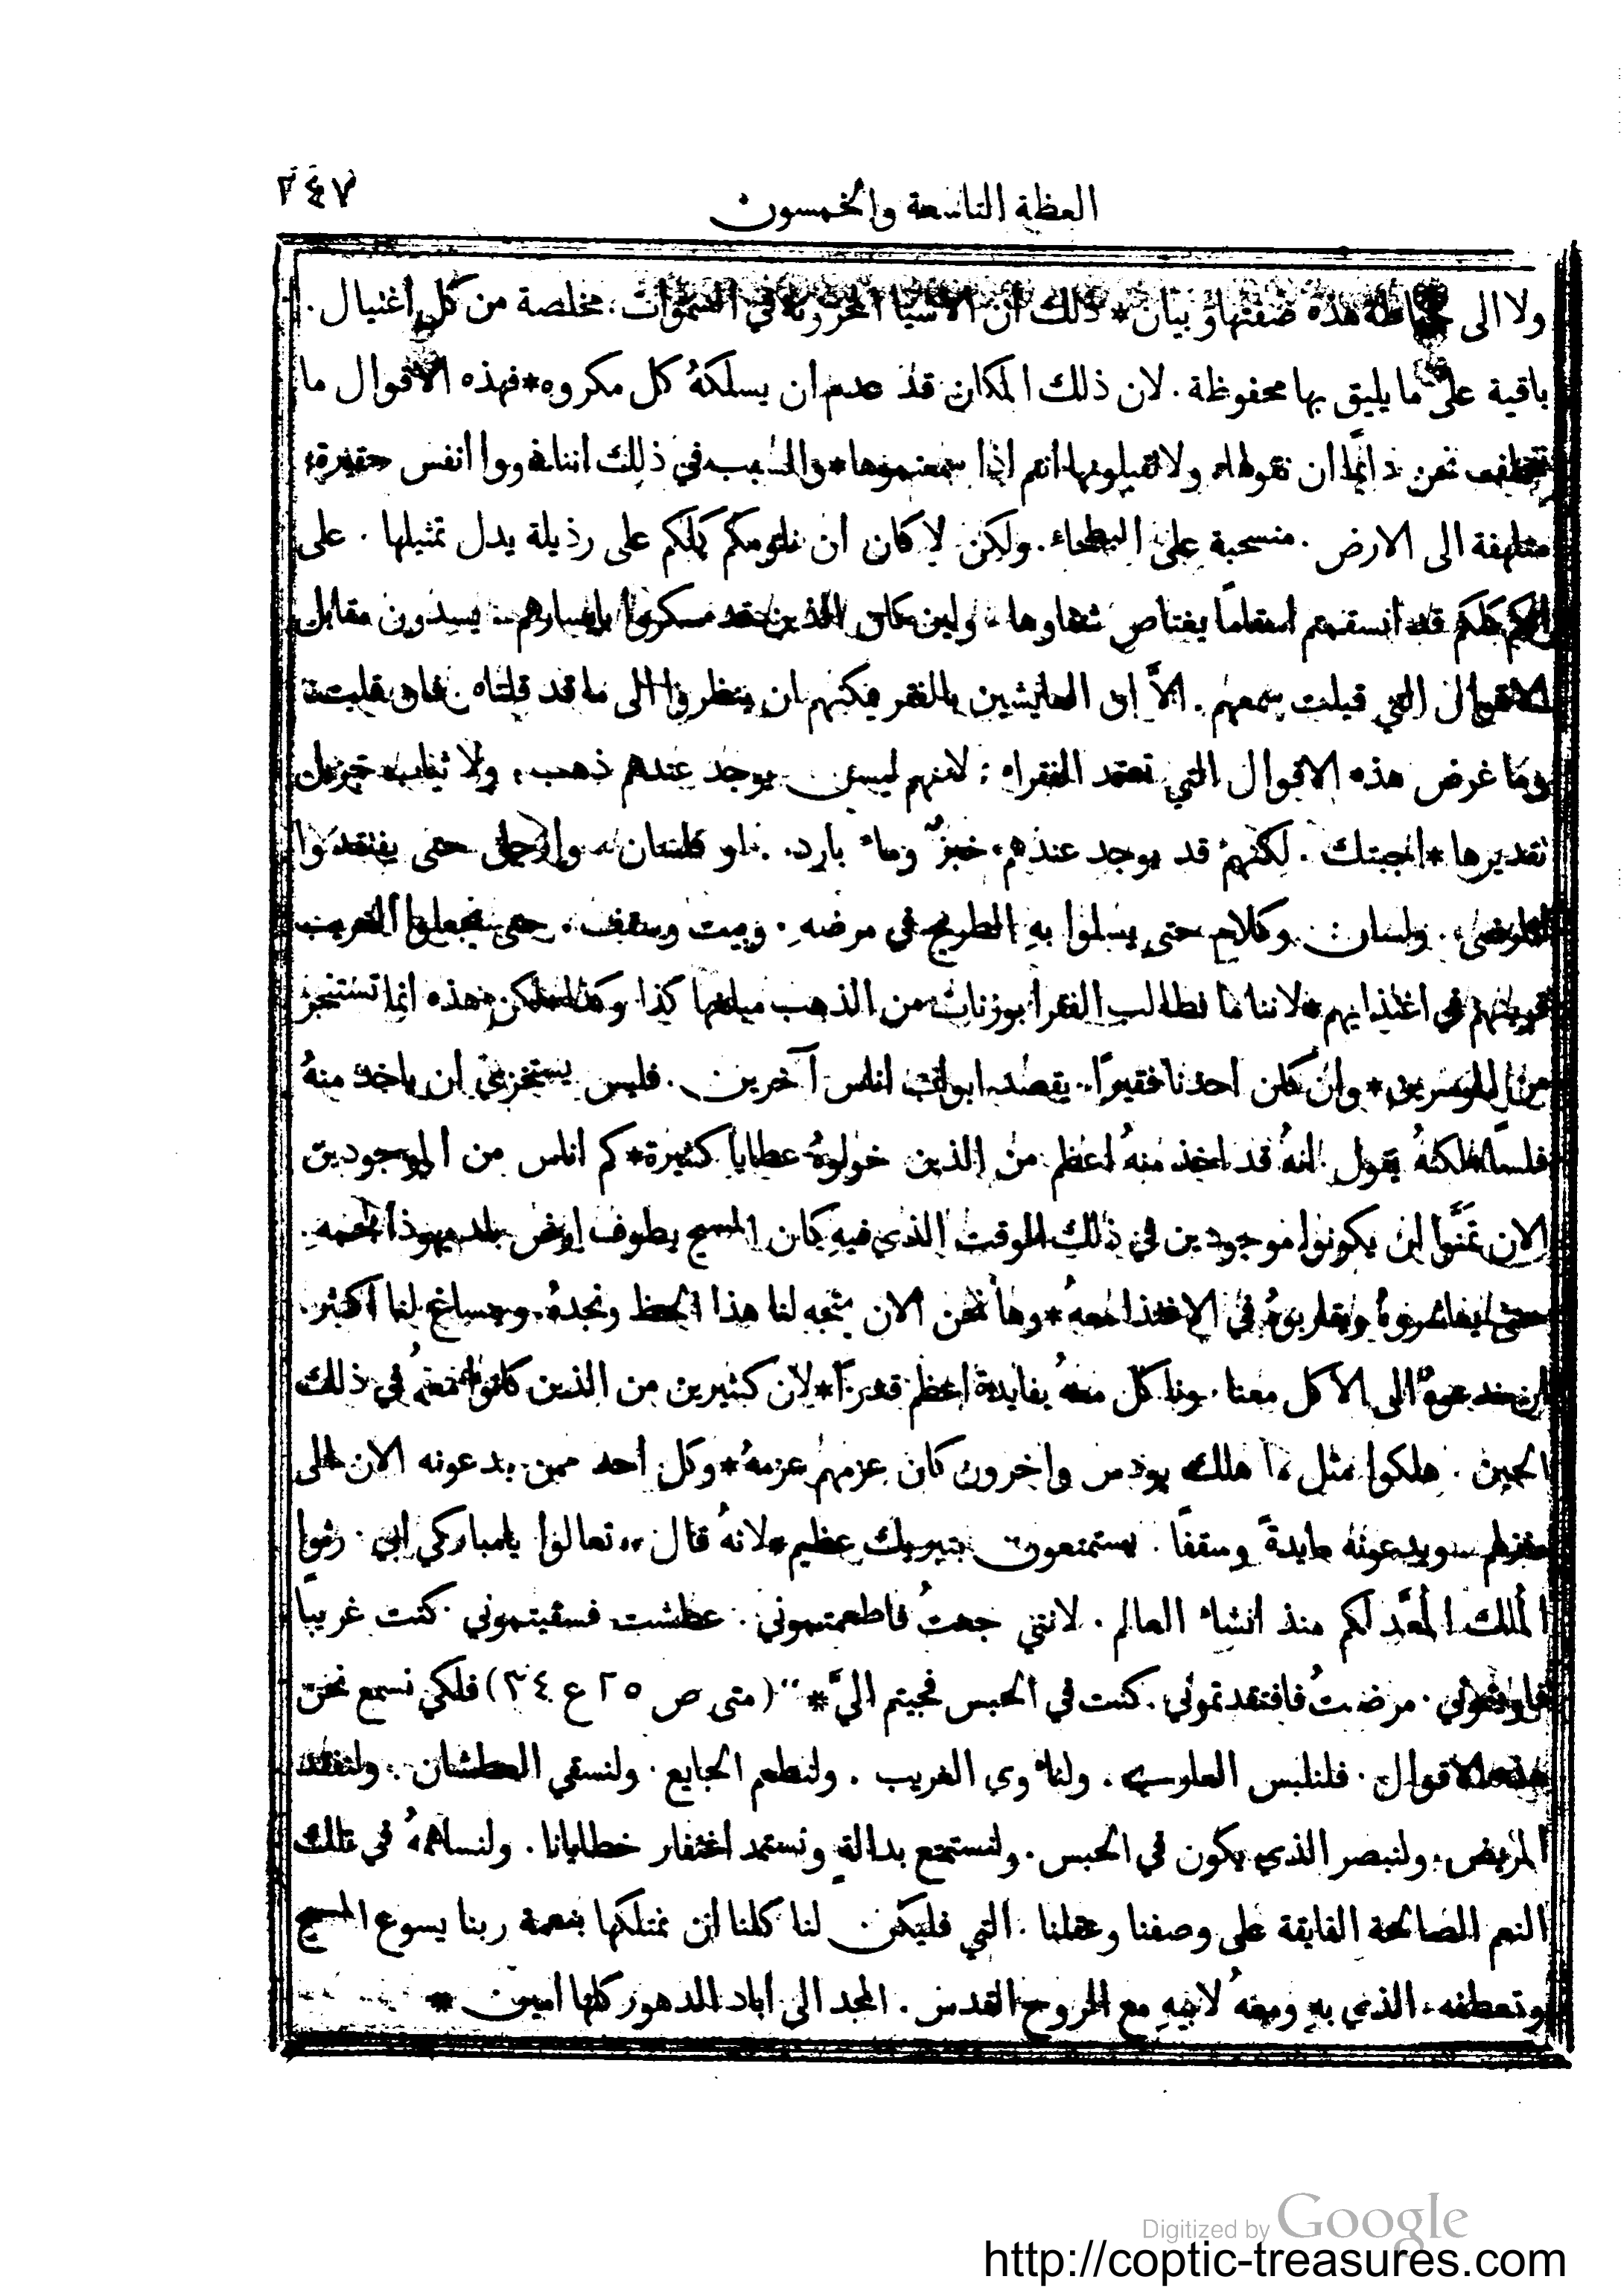 العظة التاسعة والخمسون
٢٤٧
ولا الى هذه صفتها وبيان * ذلك ان الاشيا المخزونة في السموات. مخلصة من كل اغتيال.
باقية على ما يليق بها محفوظة. لان ذلك المكان قد عدم ان يسلكهُ كل مكروه * فهذه الاقوال ما
نحن دايمًا ان نقولها. ولا تقبلونها انتم اذا سمعتموها * والسبب في ذلك اننا ذووا انفس حقيرة.
الى الارض. منسحبة على البطحاء. ولكن لا كان ان نلومكم كلكم على رذيلة يدل تمثيلها. على
انكم كلكم قد انسقمتم اسقامًا يعتاص شفاوها. ولين كان الذين قد سكروا بايسارهم. يسدون مقابل
الاقوال التي قيلت سمعهم. الَّا ان العايشين بالفقر يمكنهم ان ينظروا الى ما قد قلناه. فان قلت
وما غرض هذه الاقوال التي تعتمد الفقراء. لانهم ليس يوجد عندهم ذهب. ولا ثياب
تقديرها * اجبتك. لكنهم قد يوجد عندهم خبزٌ وماء بارد. او فلسان. وارجل حتى يفتقدوا
المرضى. ولسان. وكلام حتى يسلوا بهِ الطريح في مرضهِ. وبيت وسقف. حتى يجعلوا الغريب
في اغتذايهم * لاننا ما نطالب الفقرا بوزنات من الذهب مبلغها كذا وكذا. لكن هذه انما تستنجز
من الموسرين * وان كان احدنا فقيرًا. يقصد ابواب اناس آخرين. فليس يستخزي ان ياخذ منهُ
فلسًا. لكنهُ يقول انهُ قد اخذ منهُ اعظم من الذين خولوهُ عطايا كثيرة * كم اناس من الموجودين
الان تمنَّوا ان يكونوا موجودين في ذلك الوقت الذي فيهِ كان المسيح يطوف ارض بلد يهوذا بلحمهِ.
حتى يعاشروهُ في الاغتذا معهُ * وها نحن الان يتجه لنا هذا الحظ ونجدهُ. ومساغ لنا اكثر.
ان ندعوهُ الى الاكل معنا. وناكل معهُ بفايدة اعظم قدرًا * لان كثيرين من الذين كانوا معهُ في ذلك
الحين. هلكوا مثل ما هلك يودس واخرون كان عزمهم عزمهُ * وكل احد ممن يدعونه الان الى
منزلهم ويدعونه مايدةً وسقفًا. يستمتعون بتبريك عظيم * لانهُ قال ,, تعالوا يامباركي ابي. رثوا
الملك المعَّد لكم منذ انشاء العالم. لانني جعتُ فاطعمتموني. عطشت فسقيتموني. كنت غريبًا
فاويتموني. مرضتُ فافتقدتموني. كنت في الحبس فجيتم اليَّ * ,, (متى ص ٢٥ ع ٣٤) فلكي نسمع نحن
هذه الاقوال. فلنلبس العاري. ولناوي الغريب. ولنطعم الجايع. ولنسقي العطشان. ولنفتقد
المريض. ولنبصر الذي يكون في الحبس. ولنستمتع بدالةٍ ونستمد اغتفار خطايانا. ولنساهمهُ في تلك
النعم الصالحة الفايقة على وصفنا وعقلنا. التي فليكن لنا كلنا ان نمتلكها بنعمة ربنا يسوع المسيح
وتعطفه. الذي بهِ ومعهُ لابيهِ مع الروح القدس. المجد الى اباد الدهور كلها امين *
Digitized by Google
http://coptic-treasures.com